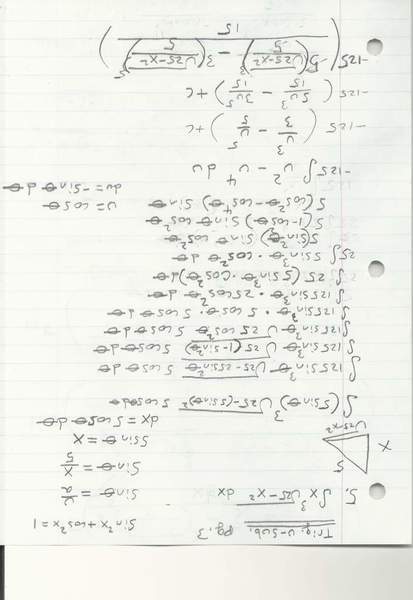 Trig. U-Sub. pg. 3
sin²x + cos²x = 1
5. ∫x³ √25-x² dx
sinθ = u/a
x 5 √25-x²
sinθ = x/5
5sinθ = x
dx = 5cosθ dθ
∫(5sinθ)³ √25-(5sinθ)² 5cosθ
∫125sin³θ √25-25sin²θ 5cosθ dθ
∫125sin³θ √25(1-sin²θ) 5cosθ dθ
∫125sin³θ √25cos²θ 5cosθ dθ
∫125sin³θ · 5cosθ · 5cosθ dθ
∫125sin³θ · 25cos²θ dθ
∫25(5sin³θ · cos²θ)dθ
25∫5sin³θ · cos²θ dθ
5(sin²θ) sinθ cos²θ
5(1-cos²θ) sinθ cos²θ
5(cos²θ-cos⁴θ) sinθ
u = cosθ
du = -sinθ dθ
-125∫u²-u⁴ du
-125(u³/3 - u⁵/5)+c
-125(5u³/15 - 3u⁵/15)+c
-125(5(√25-x²/5)³ - 3(√25-x²/5)⁵/15)